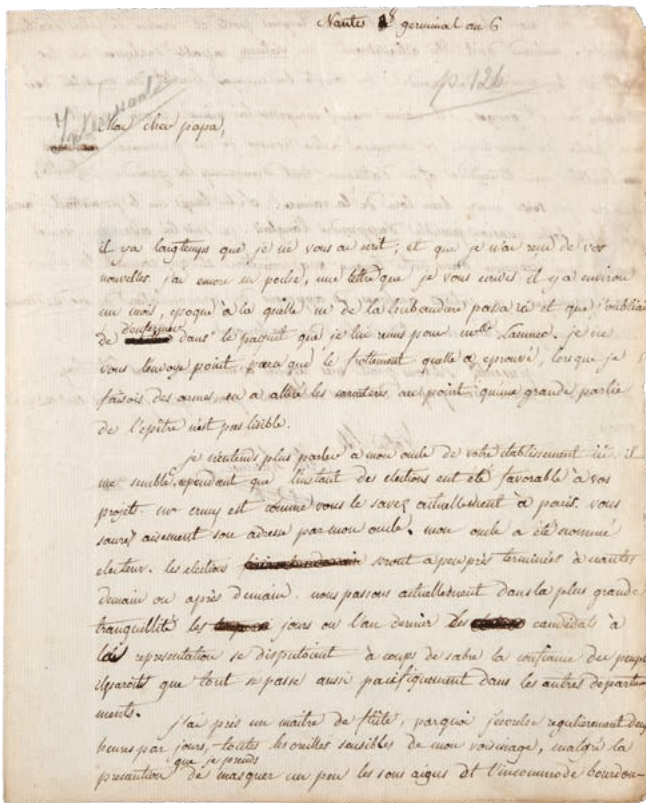 Nantes 8 germinal an 6
p. 126
Intéressante
Mon cher papa,
il y a longtemps que je ne vous ai ecrit, et que je n'ai reçu de vos
nouvelles. j'ai encore en poche, une lettre que je vous écrivis il y a environ
un mois, epoque à la quelle mr de la passa ici et que j'oubliai
de d'enfermer dans le paquet que je lui remis pour melle Laennec. je ne
vous l'envoye point, parce que le frottement quelle a eprouvé, lorsque je
faisois des armes, en a altéré les caractères, au point qu'une grande partie
de l'epitre n'est pas lisible.
je n'entends plus parler a mon oncle de votre etablissement ici. il
me semble, cependant que l'instant des elections eut été favorable à vos
projets. mr crucy est comme vous le savez actuellement à paris. vous
saurez aisement son adresse par mon oncle. mon oncle a été nommé
electeur. les elections seront a peu près terminées à nantes
demain ou après demain. nous passons actuellement dans la plus grande
tranquillité les jours ou l'an dernier les candidats à
la representation se disputoient à coups de sabre la confiance du peuple
il paroit que tout se passe aussi pacifiquement dans les autres departe
ments.
j'ai pris un maitre de flûte, parquoi j'ecorche regulierement deux
heures par jours, toutes les oreilles sensibles de mon voisinage, malgré la
que je prends
precaution de masquer un peu les sons aigus et l'incommode bourdon-